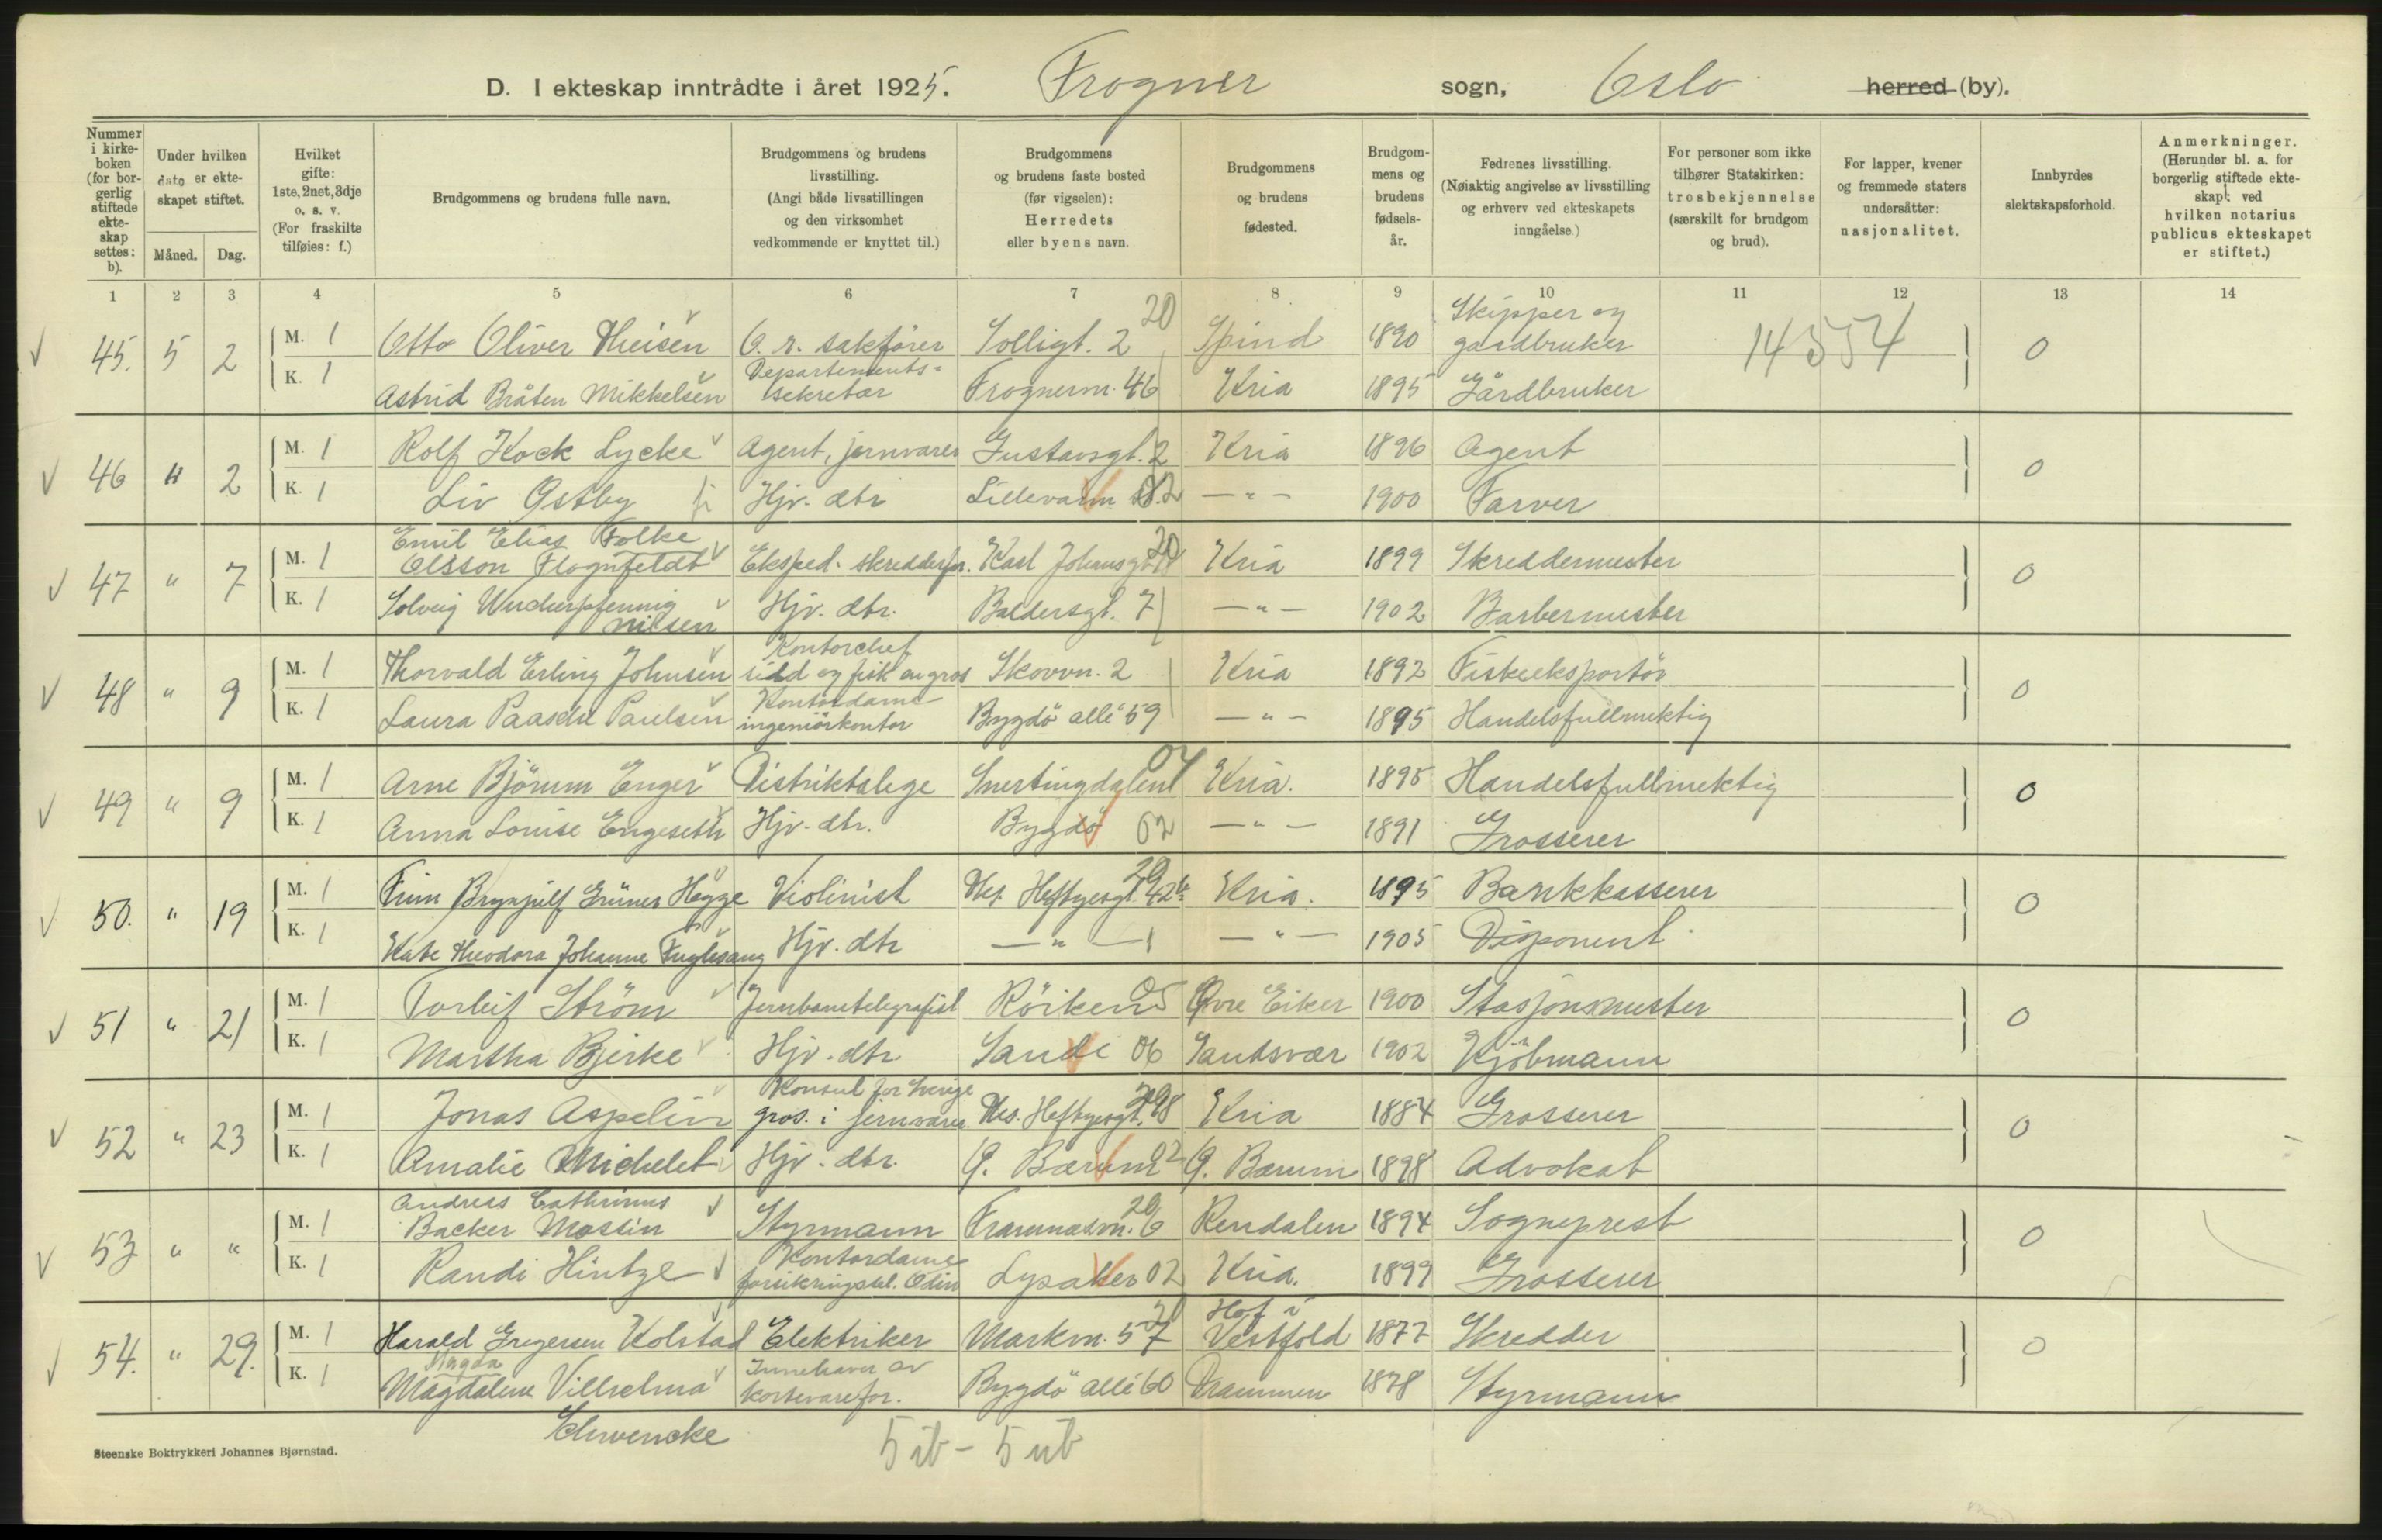 D. I ekteskap inntrådte i året 1925. Frogner sogn, Oslo herred (by).
Nummer i kirkeboken (for borgerlig stiftede ekteskap settes: b).
Under hvilken dato er ekteskapet stiftet.
Måned. Dag.
Hvilket gifte: 1ste, 2net, 3dje o. s. v. (For fraskilte tilføies: f.)
Brudgommens og brudens fulle navn.
Brudgommens og brudens livsstilling. (Angi både livsstillingen og den virksomhet vedkommende er knyttet til.)
Brudgommens og brudens faste bosted (før vigselen): Herredets eller byens navn.
Brudgommens og brudens fødested.
Brudgommens og brudens fødselsår.
Fedrenes livsstilling. (Nøiaktig angivelse av livsstilling og erhverv ved ekteskapets inngåelse.)
For personer som ikke tilhører Statskirken: trosbekjennelse (særskilt for brudgom og brud).
For lapper, kvener og fremmede staters undersåtter: nasjonalitet.
Innbyrdes slektskapsforhold.
Anmerkninger. (Herunder bl. a. for borgerlig stiftede ekteskap: ved hvilken notarius publicus ekteskapet er stiftet.)
1 2 3 4 5 6 7 8 9 10 11 12 13 14
45. 5 2 M. 1 Otto Oliver Theisen O. r. sakfører Solligt. 2 20 Spind 1890 Skipper og gardbruker 14554 0
K. 1 Astrid Bråten Mikkelsen Departements-sekretær Frognerv. 46 Kria 1895 Gårdbruker
46 " 2 M. 1 Rolf Kock Lycke Agent, jernvarer Gustavsgt. 2 Kria 1896 Agent 0
K. 1 Liv Østby Hjv. dtr 02 — " — 1900 Farver
47 " 7 M. 1 Emil Elias Folke Olsson Flognfeldt Eksped. skredderfor. Karl Johansgt 20 Kria 1899 Skreddermester 0
K. 1 Solveig Wunderpfennig Nilsen Hjv. dtr. Baldersgt. 7 — " — 1902 Barbermester
48 " 9 M. 1 Thorvald Erling Johnsen Kontorchef sild og fisk engros Skovvn. 2 Kria 1892 Fiskeeksportör 0
K. 1 Laura Paasche Paulsen Kontordame ingeniörkontor Bygdö allé 59 — " — 1895 Handelsfullmektig
49 " 9 M. 1 Arne Björum Enger Distriktslege Snertingdalen 04 Kria. 1895 Handelsfullmektig 0
K. 1 Anna Louise Engeseth Hjv. dtr. Bygdö 02 — " — 1891 Grosserer
50. " 19 M. 1 Finn Brynjulf Grüner Hegge Violinist Ths. Heftyesgt. 42 20 Kria. 1895 Bankkasserer 0
K. 1 Kate Theodora Johanne Fuglesang Hjv. dtr — " — — " — 1905 Disponent
51 " 21 M. 1 Torleif Ström Jernbanetelegrafist Röiken 05 Øvre Eiker 1900 Stasjonsmester 0
K. 1 Martha Bjerke Hjv. dtr Sande 06 Sandsvær 1902 Kjöbmann
52 " 23 M. 1 Jonas Aspelin Konsul for Sverige gros. i jernvarer Ths. Heftyesgt. Kria 1884 Grosserer 0
K. 1 Amalie Michelet Hjv. dtr. Ø. Bærum 02 Ø. Bærum 1898 Advokat
53 " " M. 1 Andreas Cathrinus Backer Mossin Styrmann Frammæsvn. 6 20 Rendalen 1894 Sogneprest 0
K. 1 Randi Hintze Kontordame forsikringssel. Odin Lysaker 02 Kria. 1899 Grosserer
54. " 29. M. 1 Harald Gregersen Kolstad Elektriker Markvn. 57 20 Hof i Vestfold 1877 Skredder 0
K. 1 Magda Magdalene Vilhelma Schwencke Innehaver av kortevarefor. Bygdö allé 60 Drammen 1878 Styrmann
5 ib - 5 ub
Steenske Boktrykkeri Johannes Bjørnstad.